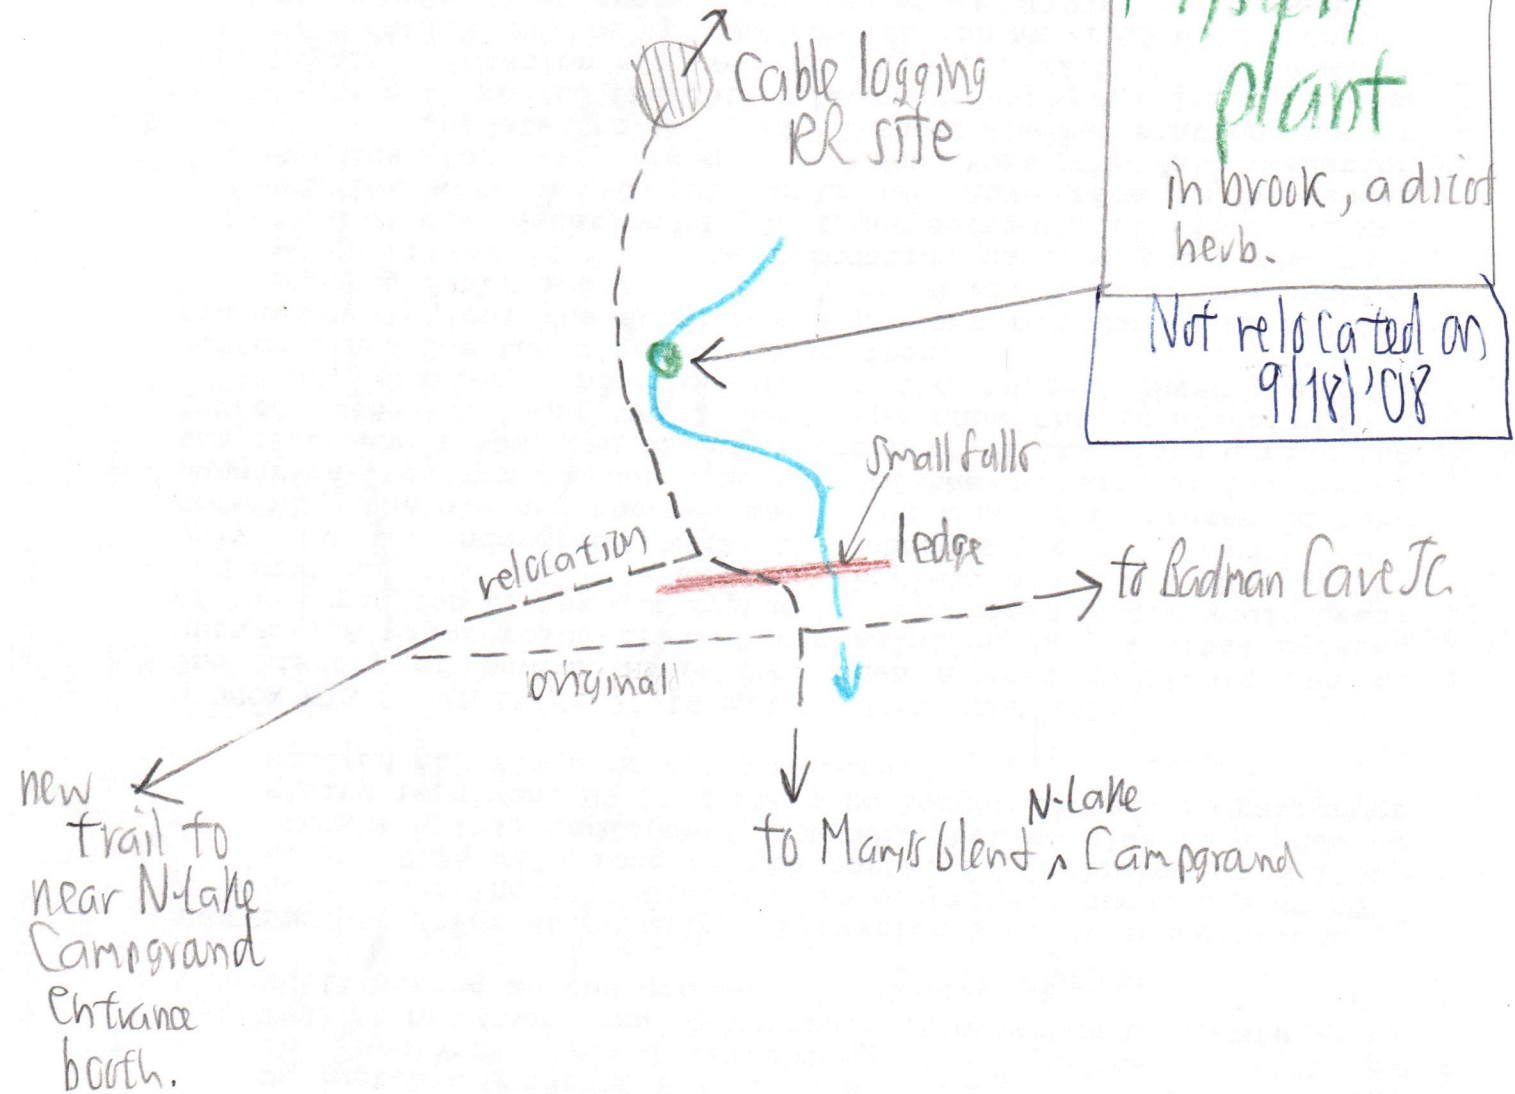 Cable logging
RR site
plant
in brook, a dicot
herb.
Not relocated on
9/18/'08
small falls
ledge
relocation
to Badman Cave Jc.
original
new
trail to
near N-Lake
Campgrand
entrance
booth.
N-Lake
to Mary's Glend ^ Campgrand